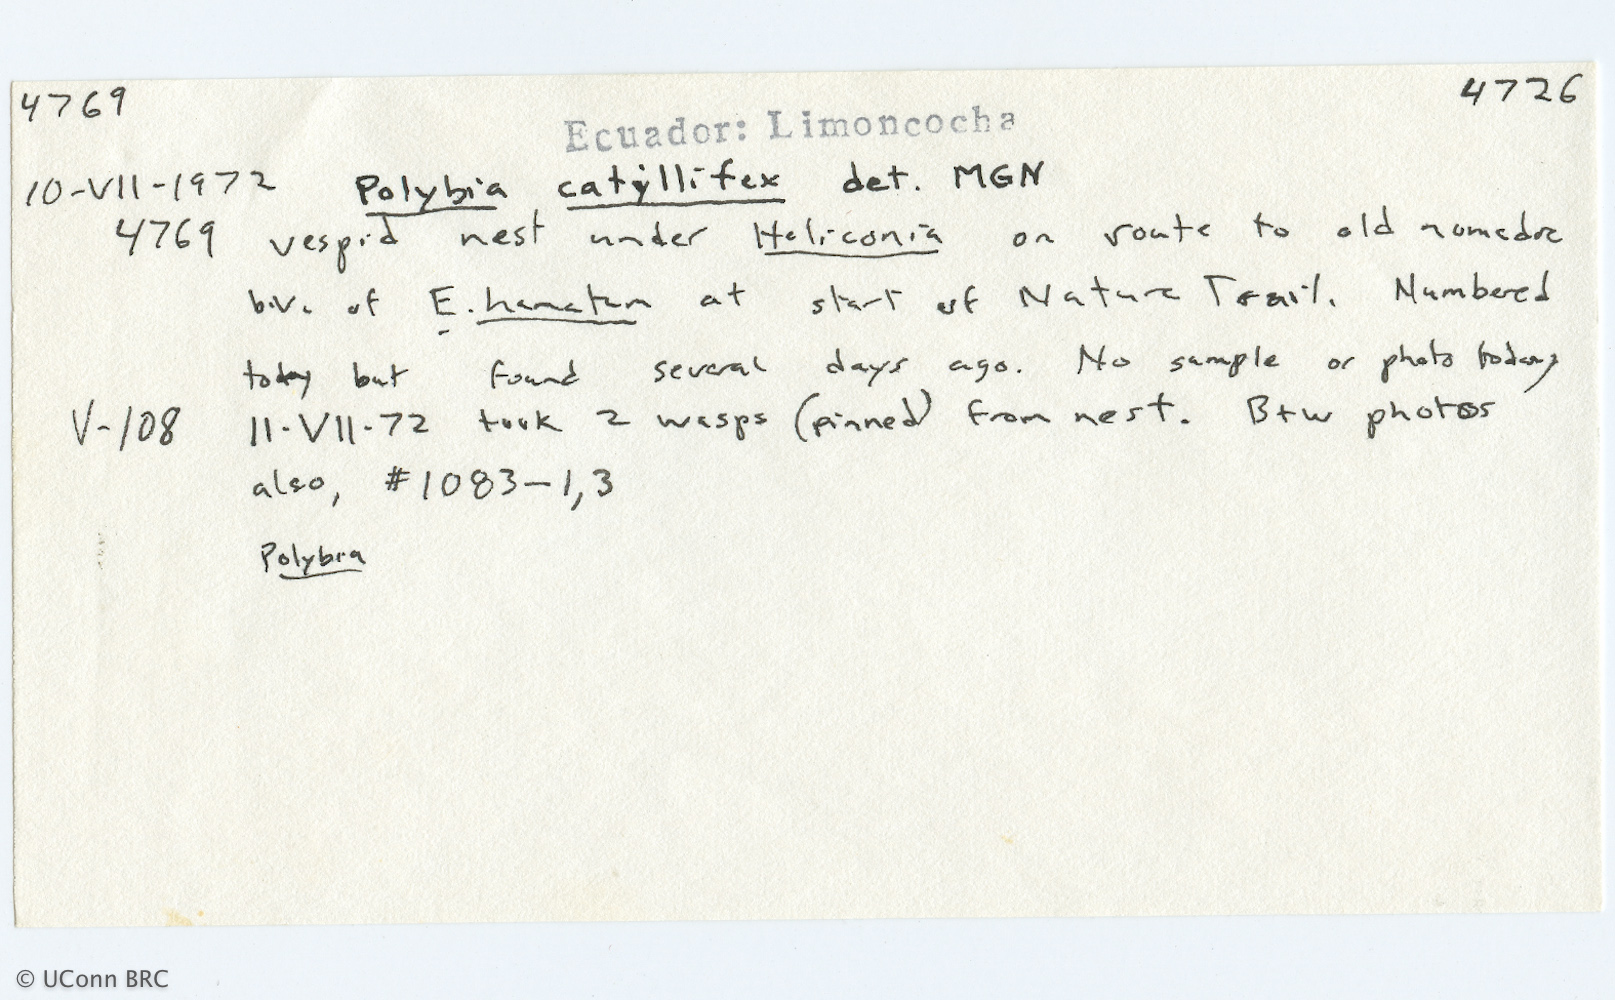 4769 4726
Ecuador: Limoncocha
10-VII-1972 Polybia catyllifex det. MGN
4769 vespid nest under Heliconia on route to old nomadic
biv. of E. hamatum at start of Nature Trail. Numbered
today but found several days ago. No sample or photo today
V-108 11-VII-72 took 2 wasps (pinned) from nest. B+w photos
also, #1083-1,3
Polybia
© UConn BRC